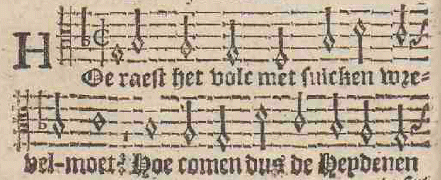 HOe raest het volc met sulcken wre-
vel-moet? Hoe comen dus de Heydenen